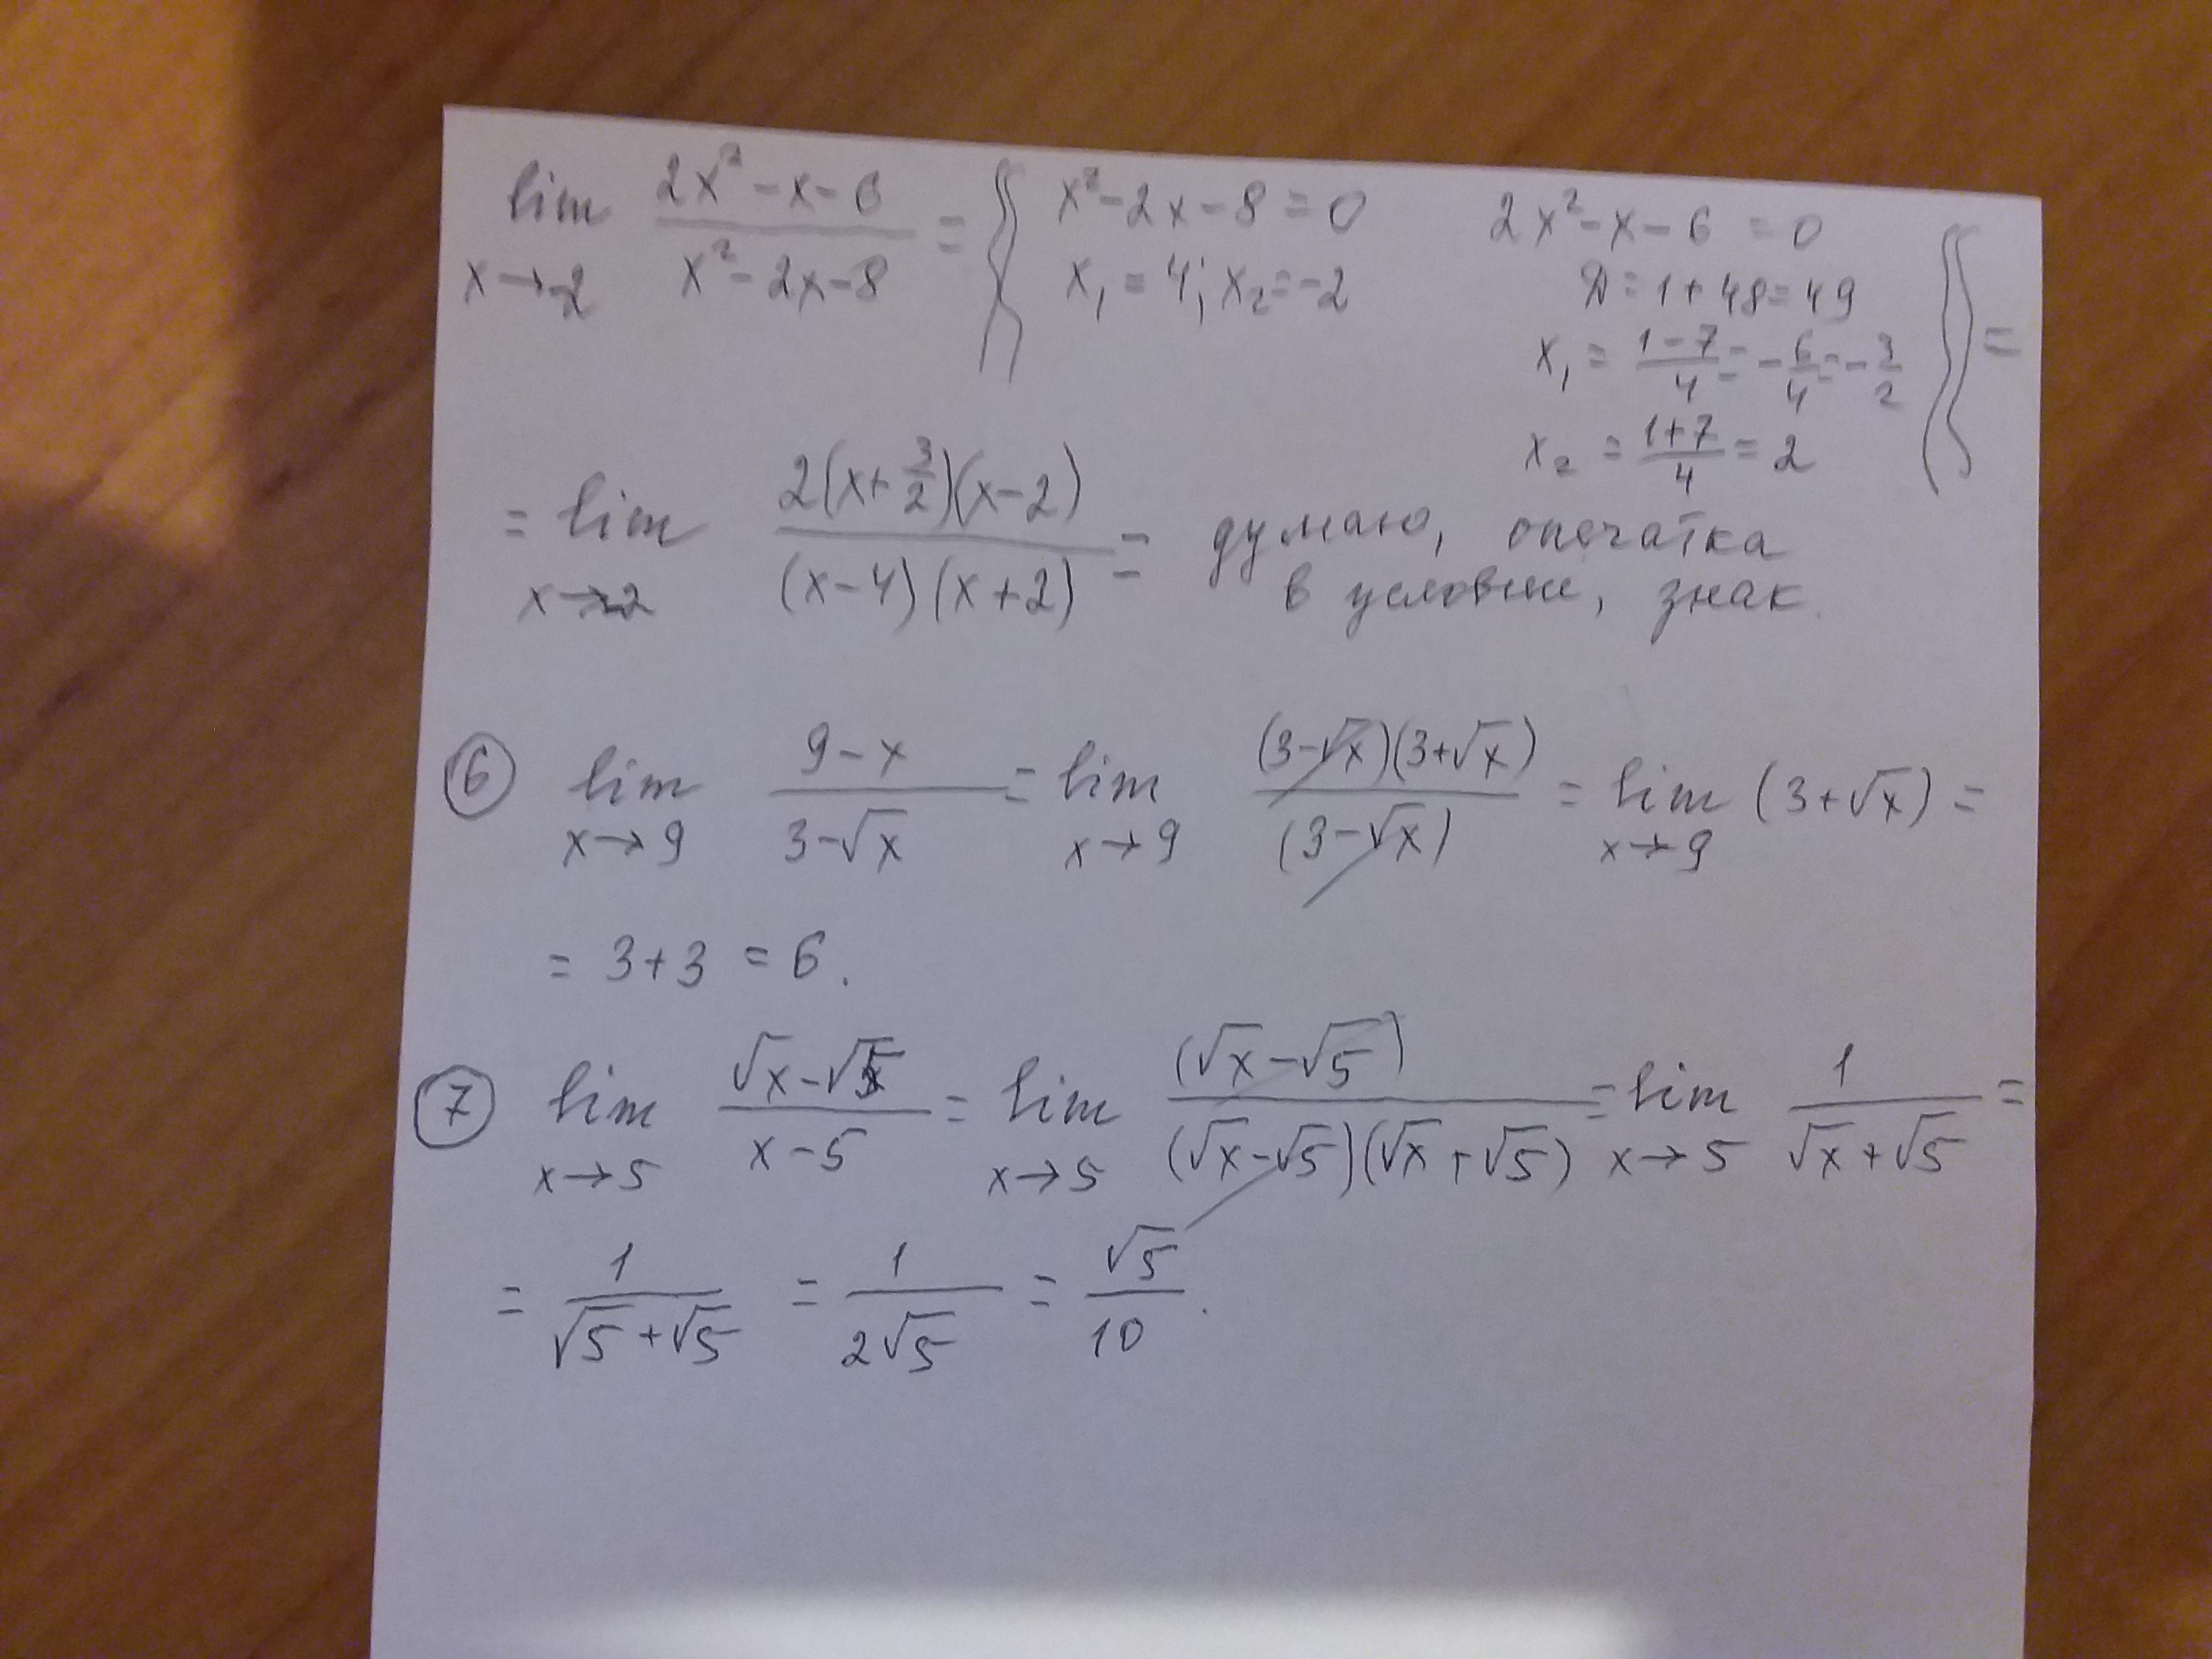 lim x→-2 (2x² - x - 6)/(x² - 2x - 8) = { x² - 2x - 8 = 0 2x² - x - 6 = 0
x₁ = 4; x₂ = -2 D = 1 + 48 = 49
x₁ = (1-7)/4 = -6/4 = -3/2
x₂ = (1+7)/4 = 2 } =
= lim x→-2 2(x + 3/2)(x - 2)/((x - 4)(x + 2)) = думаю, опечатка
в условии, знак.
⑥ lim x→9 (9 - x)/(3 - √x) = lim x→9 (3 - √x)(3 + √x)/(3 - √x) = lim x→9 (3 + √x) =
= 3 + 3 = 6.
⑦ lim x→5 (√x - √5)/(x - 5) = lim x→5 (√x - √5)/((√x - √5)(√x + √5)) = lim x→5 1/(√x + √5) =
= 1/(√5 + √5) = 1/(2√5) = √5/10.